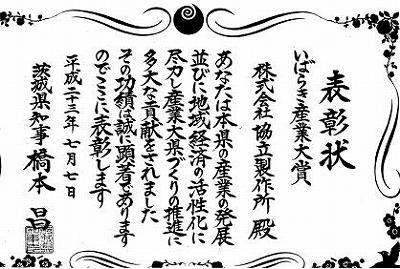 表彰状
いばらき産業大賞
株式会社 協立製作所 殿
あなたは本県の産業の発展
並びに地域経済の活性化に
尽力し産業大県づくりの推進に
多大な貢献をされました
その功績は誠に顕著であります
のでここに表彰します
平成二十三年七月七日
茨城県知事 橋本 昌